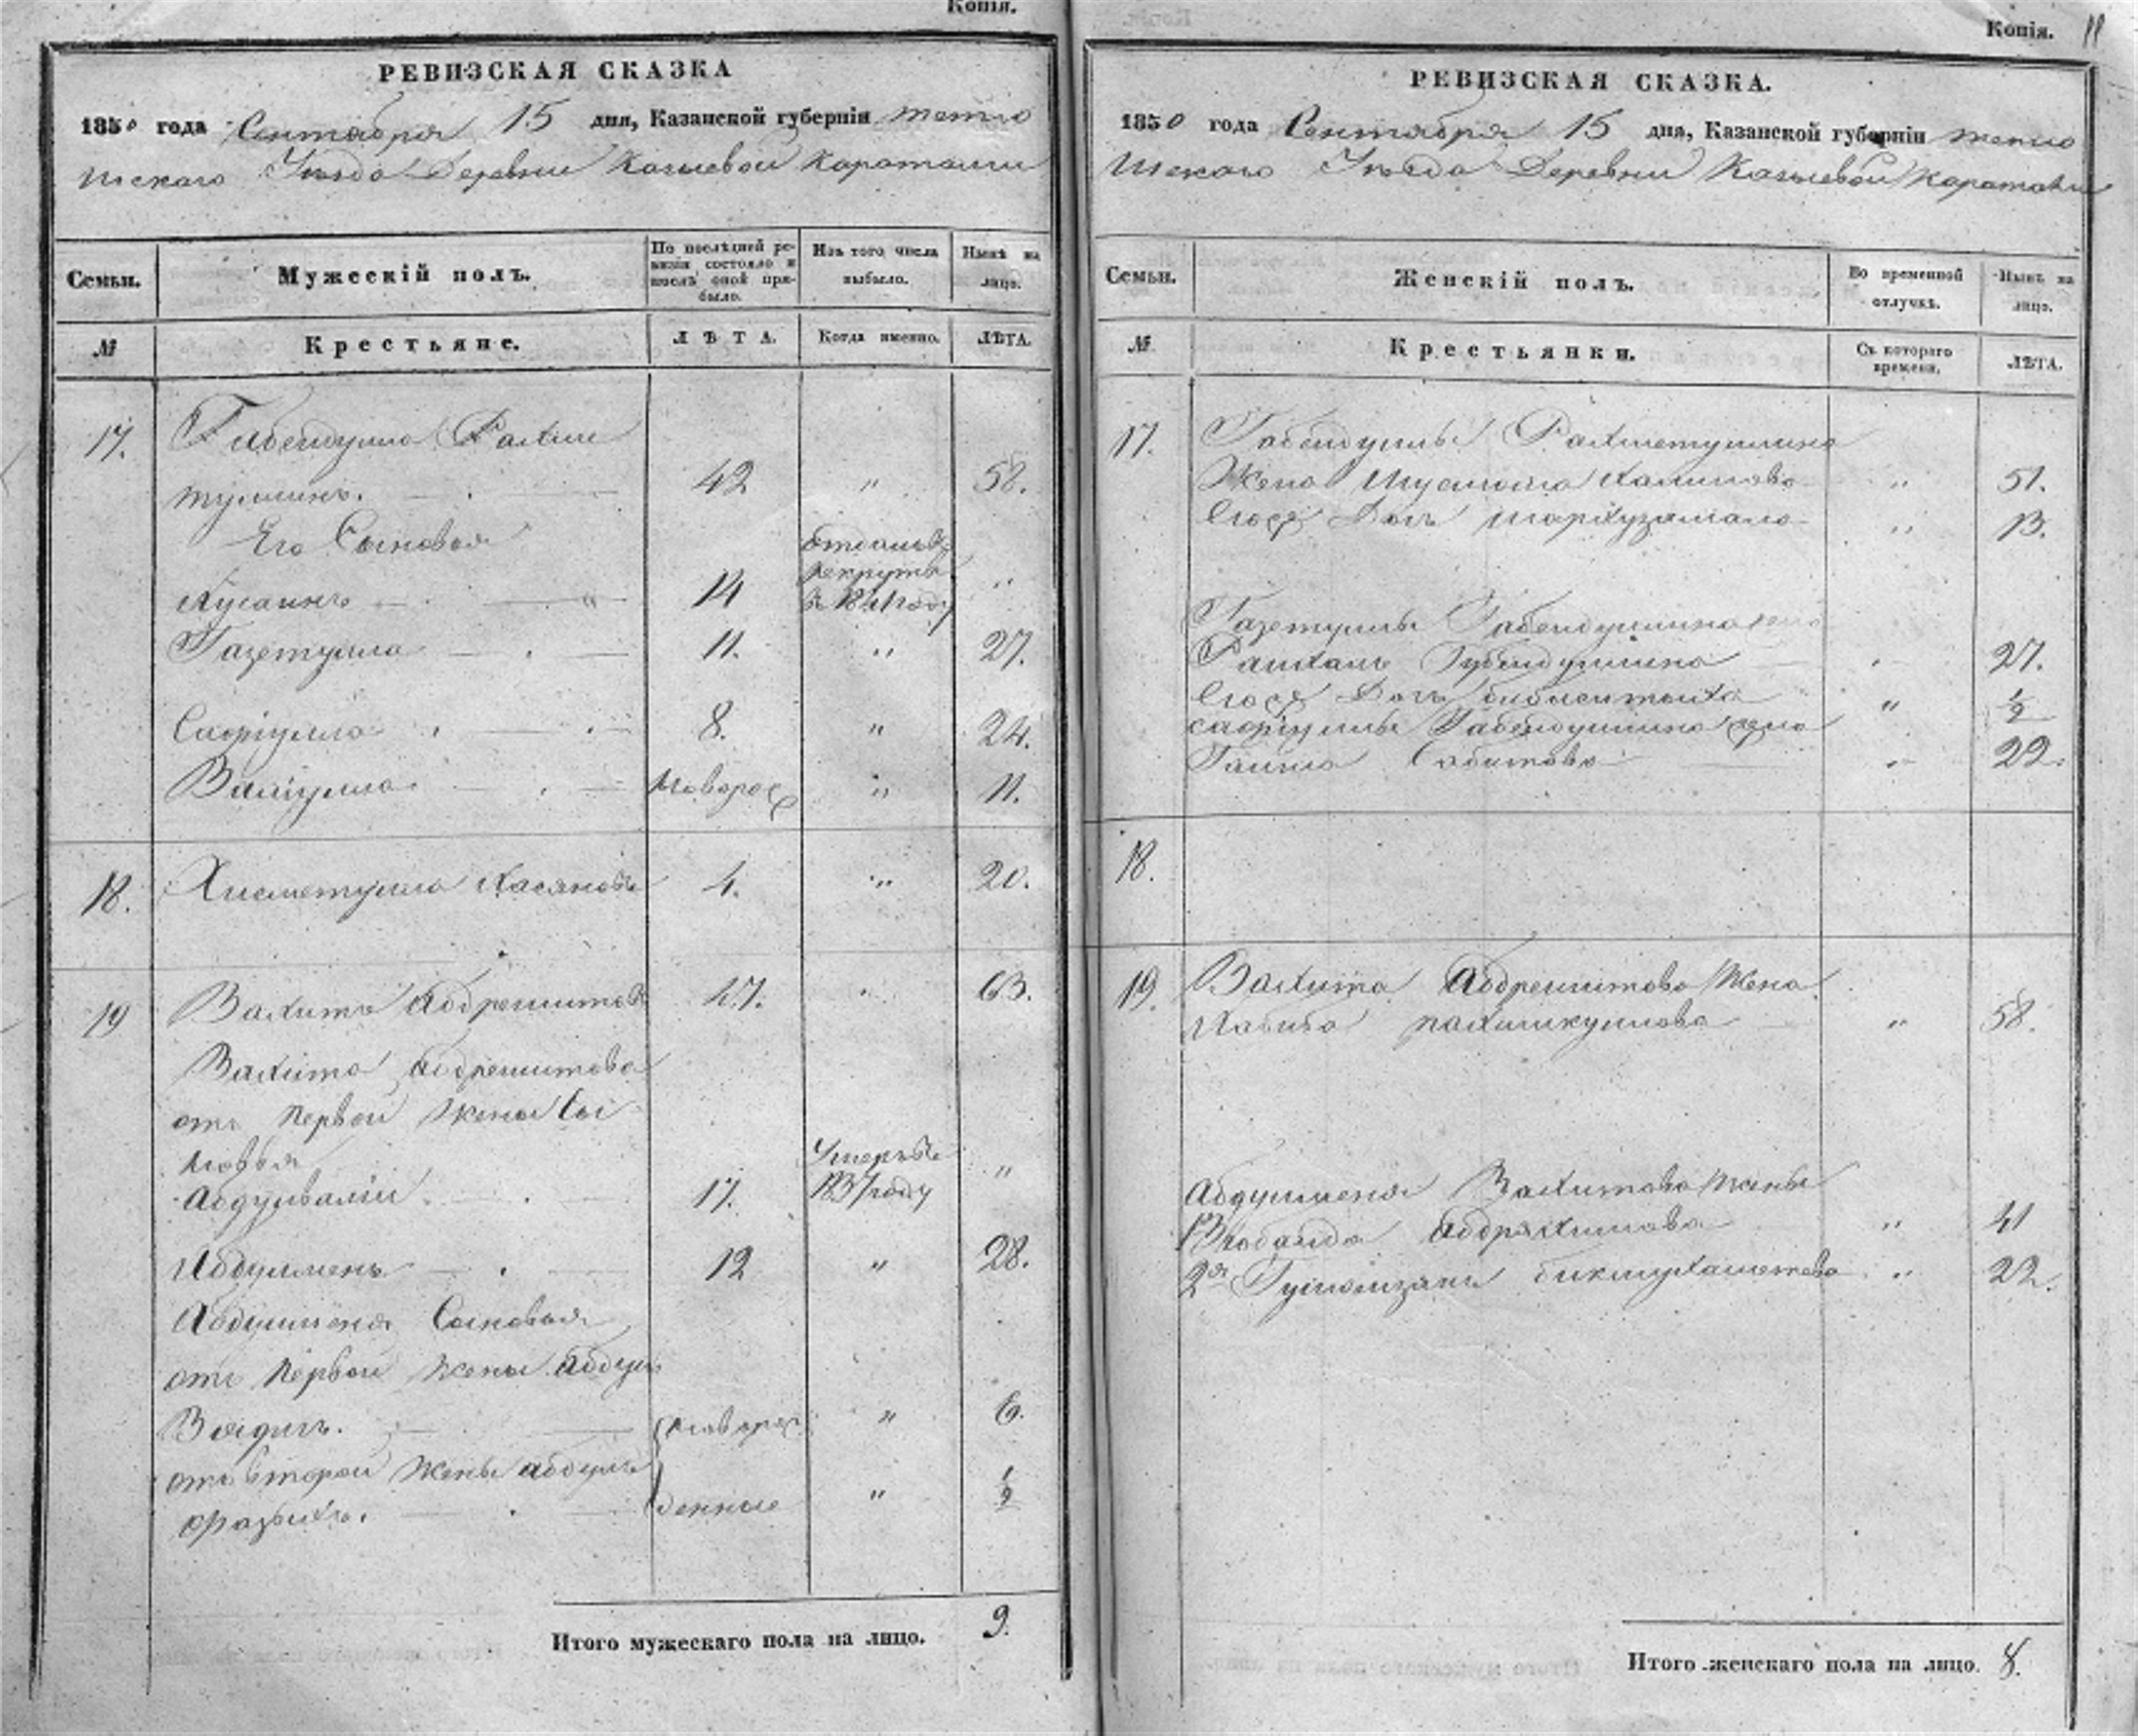 Копія.
РЕВИЗСКАЯ СКАЗКА
1850 года Сентября 15 дня, Казанской губерніи тетю
шскаго Уѣзда Деревни Казыевой Караталги
Семьи.
Мужескій полъ.
По послѣдней ре-
визіи состояло и
послѣ оной при-
было.
Изъ того числа
выбыло.
Нынѣ на
лицо.
№
Крестьяне.
ЛѢТА.
Когда именно.
ЛѢТА.
17.
Габейдулла Рахме
туллинъ. 42 " 58.
Его Сыновья
Хусаинъ 14 отданъ въ рекруты в 1841 году "
Газетулла 11. " 27.
Сафіулла 8. " 24.
Валіулла новорож " 11.
18. Хисметулла Касяновъ 4. " 20.
19 Вахитъ Абдрешитовъ 47. " 63.
Вахита Абдрешитова
отъ первой жены Сы
новья
Абдулвалій 17. Умеръ въ 1837 году "
Абдулменъ 12 " 28.
Абдулменя Сыновья
отъ первой жены Абдул
Вагизъ. новорож " 6.
отъ второй жены абдулъ
фазыхъ. денные " ½
Итого мужескаго пола на лицо. 9.
Копія. 11
РЕВИЗСКАЯ СКАЗКА.
1850 года Сентября 15 дня, Казанской губерніи тетю
шскаго Уѣзда Деревни Казыевой Караталги
Семьи.
Женскій полъ.
Во временной
отлучкѣ.
Нынѣ на
лицо.
№
Крестьянки.
Съ котораго
времени.
ЛѢТА.
17. Габейдуллы Рахметуллина
Жена Халилова " 51.
Дочь " 13.
Газетуллы Габейдуллина жена
Губейдуллина " 27.
Дочь " ½
Сафіуллы Габейдуллина жена
Сабитова " 22.
18.
19. Вахита Абдрешитова Жена
Хабиба " 58.
Абдулменя Вахитова жены
1я Абдрахимова " 41
2я Бикмухаметева " 22.
Итого женскаго пола на лицо. 8.